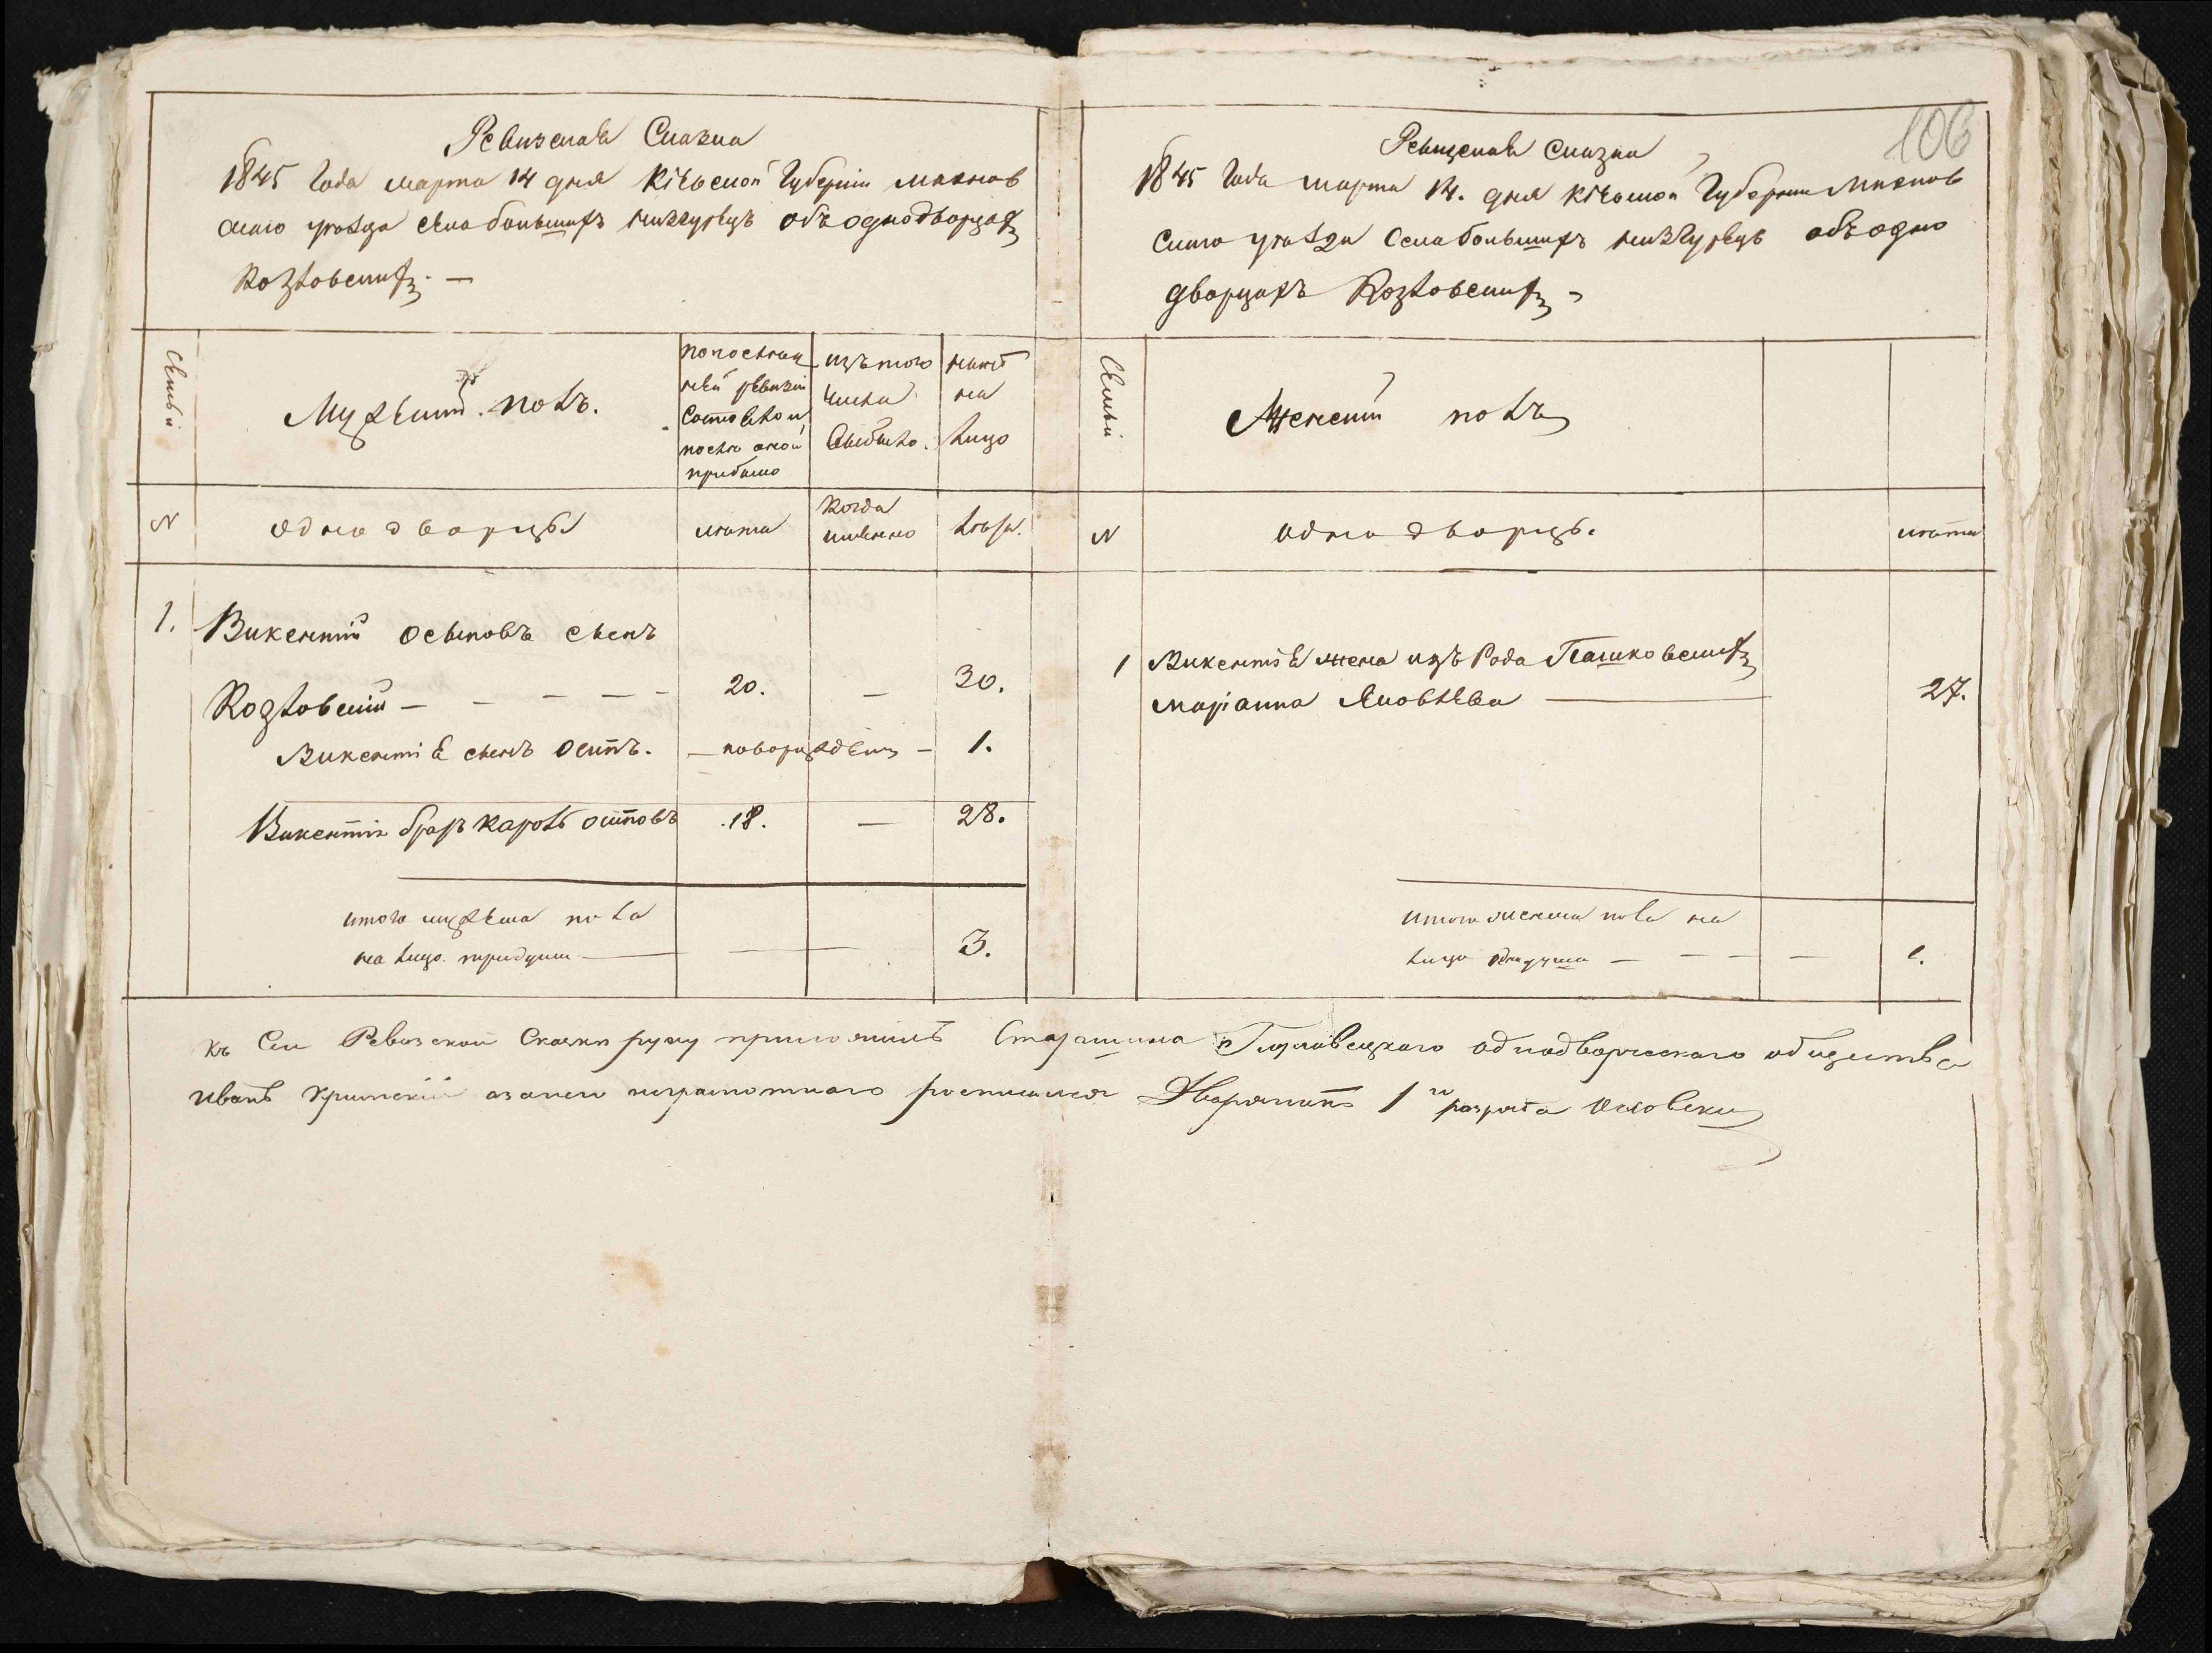 Ревизская Сказка
1845 Года марта 14 дня Кіевской Губерніи Махнов
скаго уезда села большихъ низгурецъ объ однодворцахъ
Козловскихъ. —
Семьи
Мужеский. полъ.
попослед
ней ревизіи
Состояло и
после оной
прибыло
изътого
числа
выбыло.
ныне
на
лицо
N
однодворцы
лета
Когда
имянно
лета.
1.
Викентий осиповъ сынъ
Козловский — — — — —
20.
—
30.
Викентіе сынъ осипъ.
— новорожденъ —
1.
Викентія братъ кароль осиповъ
.18.
—
28.
итого мужеска пола
на лицо. три души —
3.
106
Ревизская сказка
1845 Года марта 14. дня кіевской Губернии Махнов
скаго уезда села большихъ низгурецъ объ одно
дворцахъ Козловскихъ -
Семьи
Женский полъ
N
однодворцы.
лета
1
Викентіе жена изъ Рода Пашковскихъ
маріанна Яковлева —
27.
итого женска пола на
лицо одна душа — — — —
1.
къ Сей Ревизской Сказки руку приложилъ Старшина однодворческаго общества
иванъ Крыжский а за него неграмотнаго росписался Дворянинъ 1го разряда